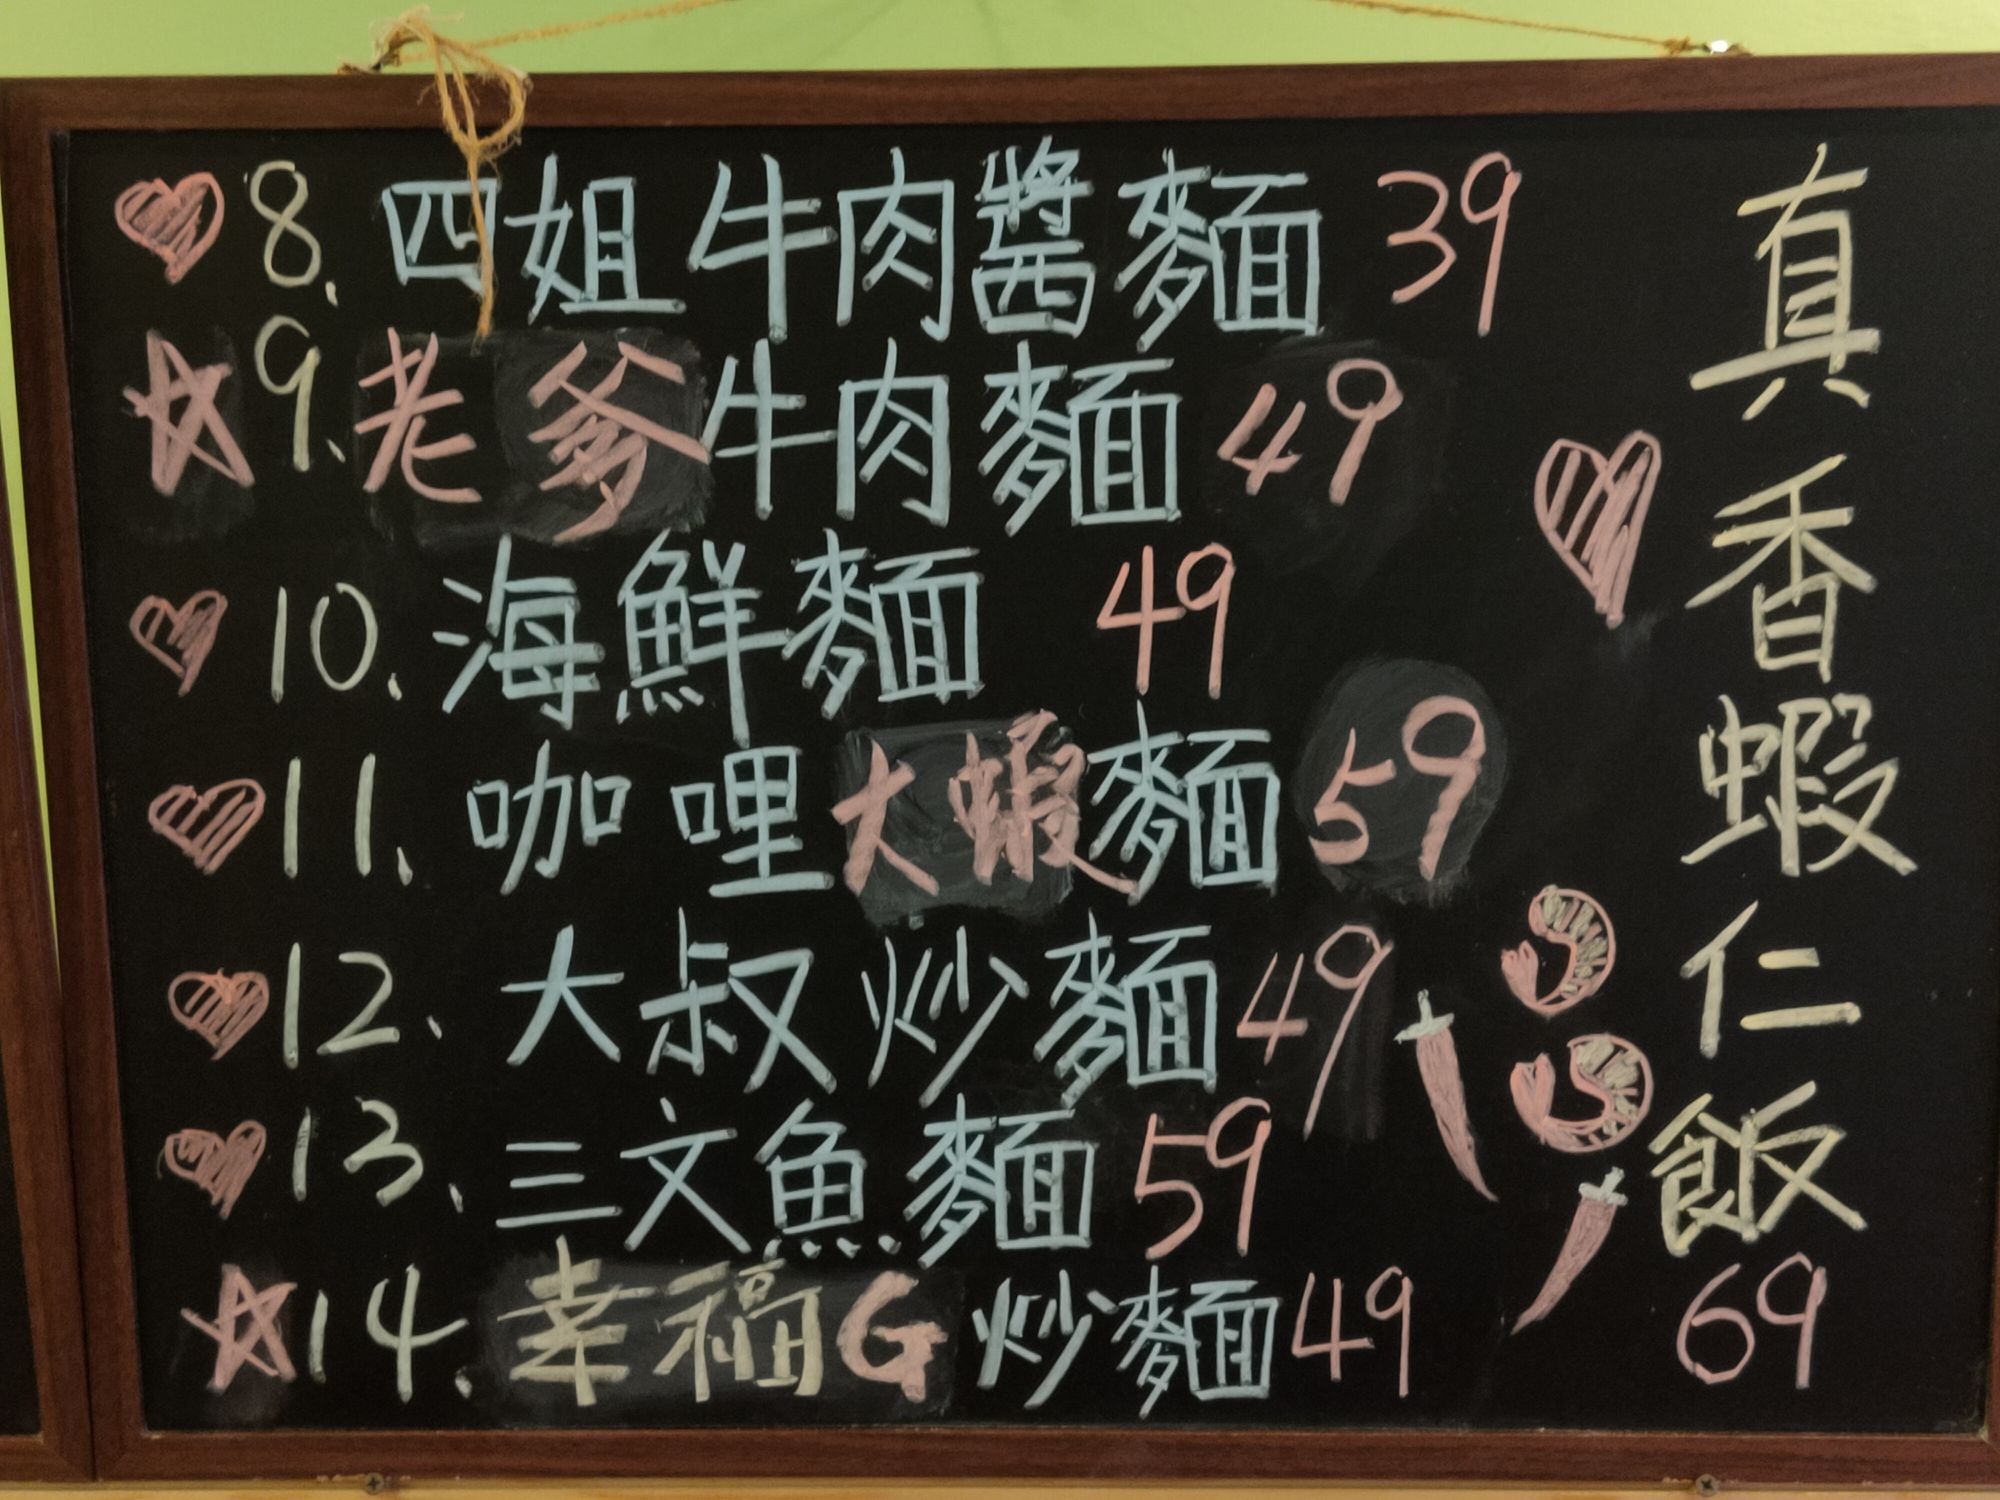 8. 四姐牛肉醬麵 39
9. 老爹牛肉麵 49
10. 海鮮麵 49
11. 咖哩大蝦麵 59
12. 大叔炒麵 49
13. 三文魚麵 59
14. 幸福G炒麵 49
真香蝦仁飯
69